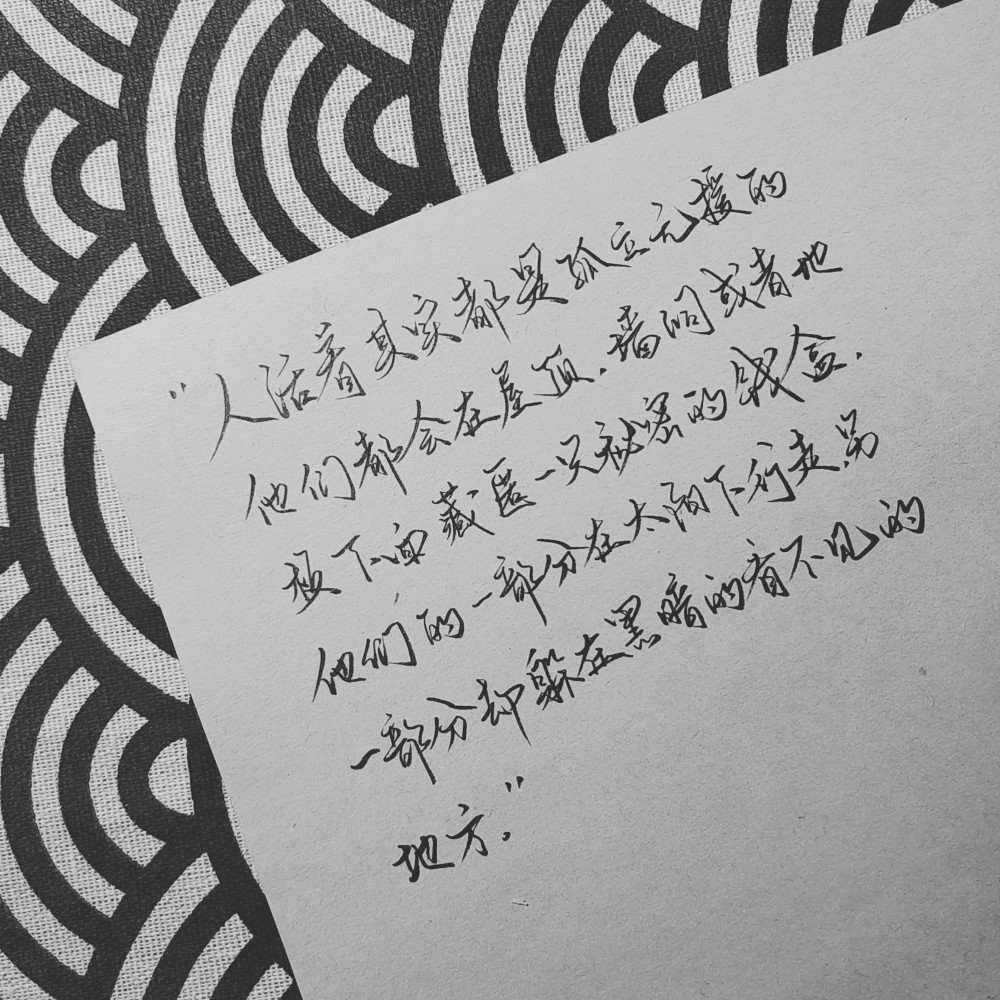 “人活着其实都是孤立无援的
他们都会在屋顶、墙洞或者地
板下面藏匿一只秘密的钱盒.
他们的一部分在太阳下行走另
一部分却躲在黑暗的看不见的
地方.”